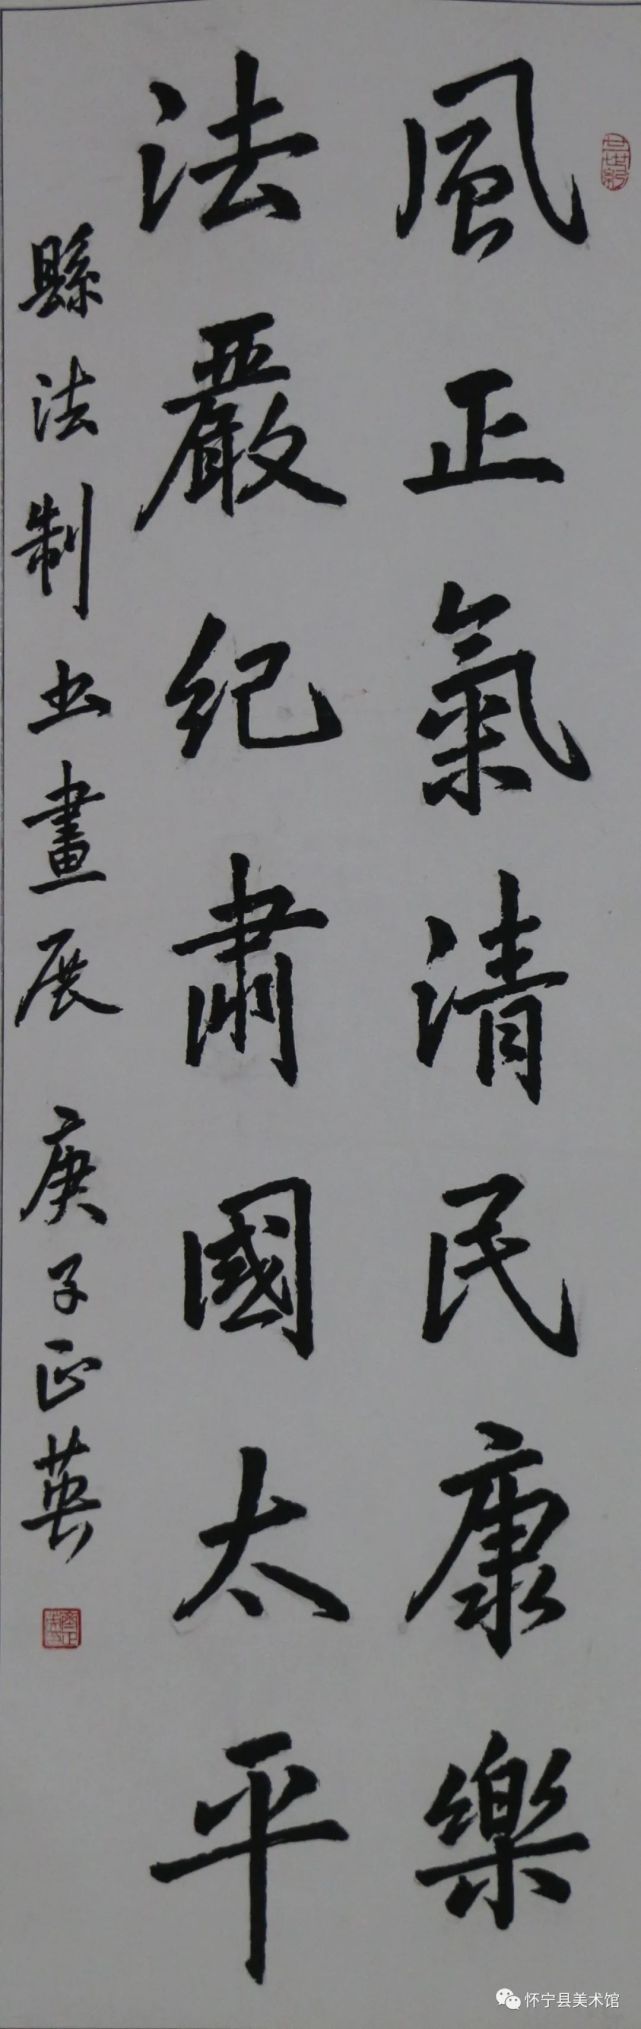 風正氣清民康樂
法嚴纪肅國太平
縣法制书畫展 庚子正英
怀宁县美术馆